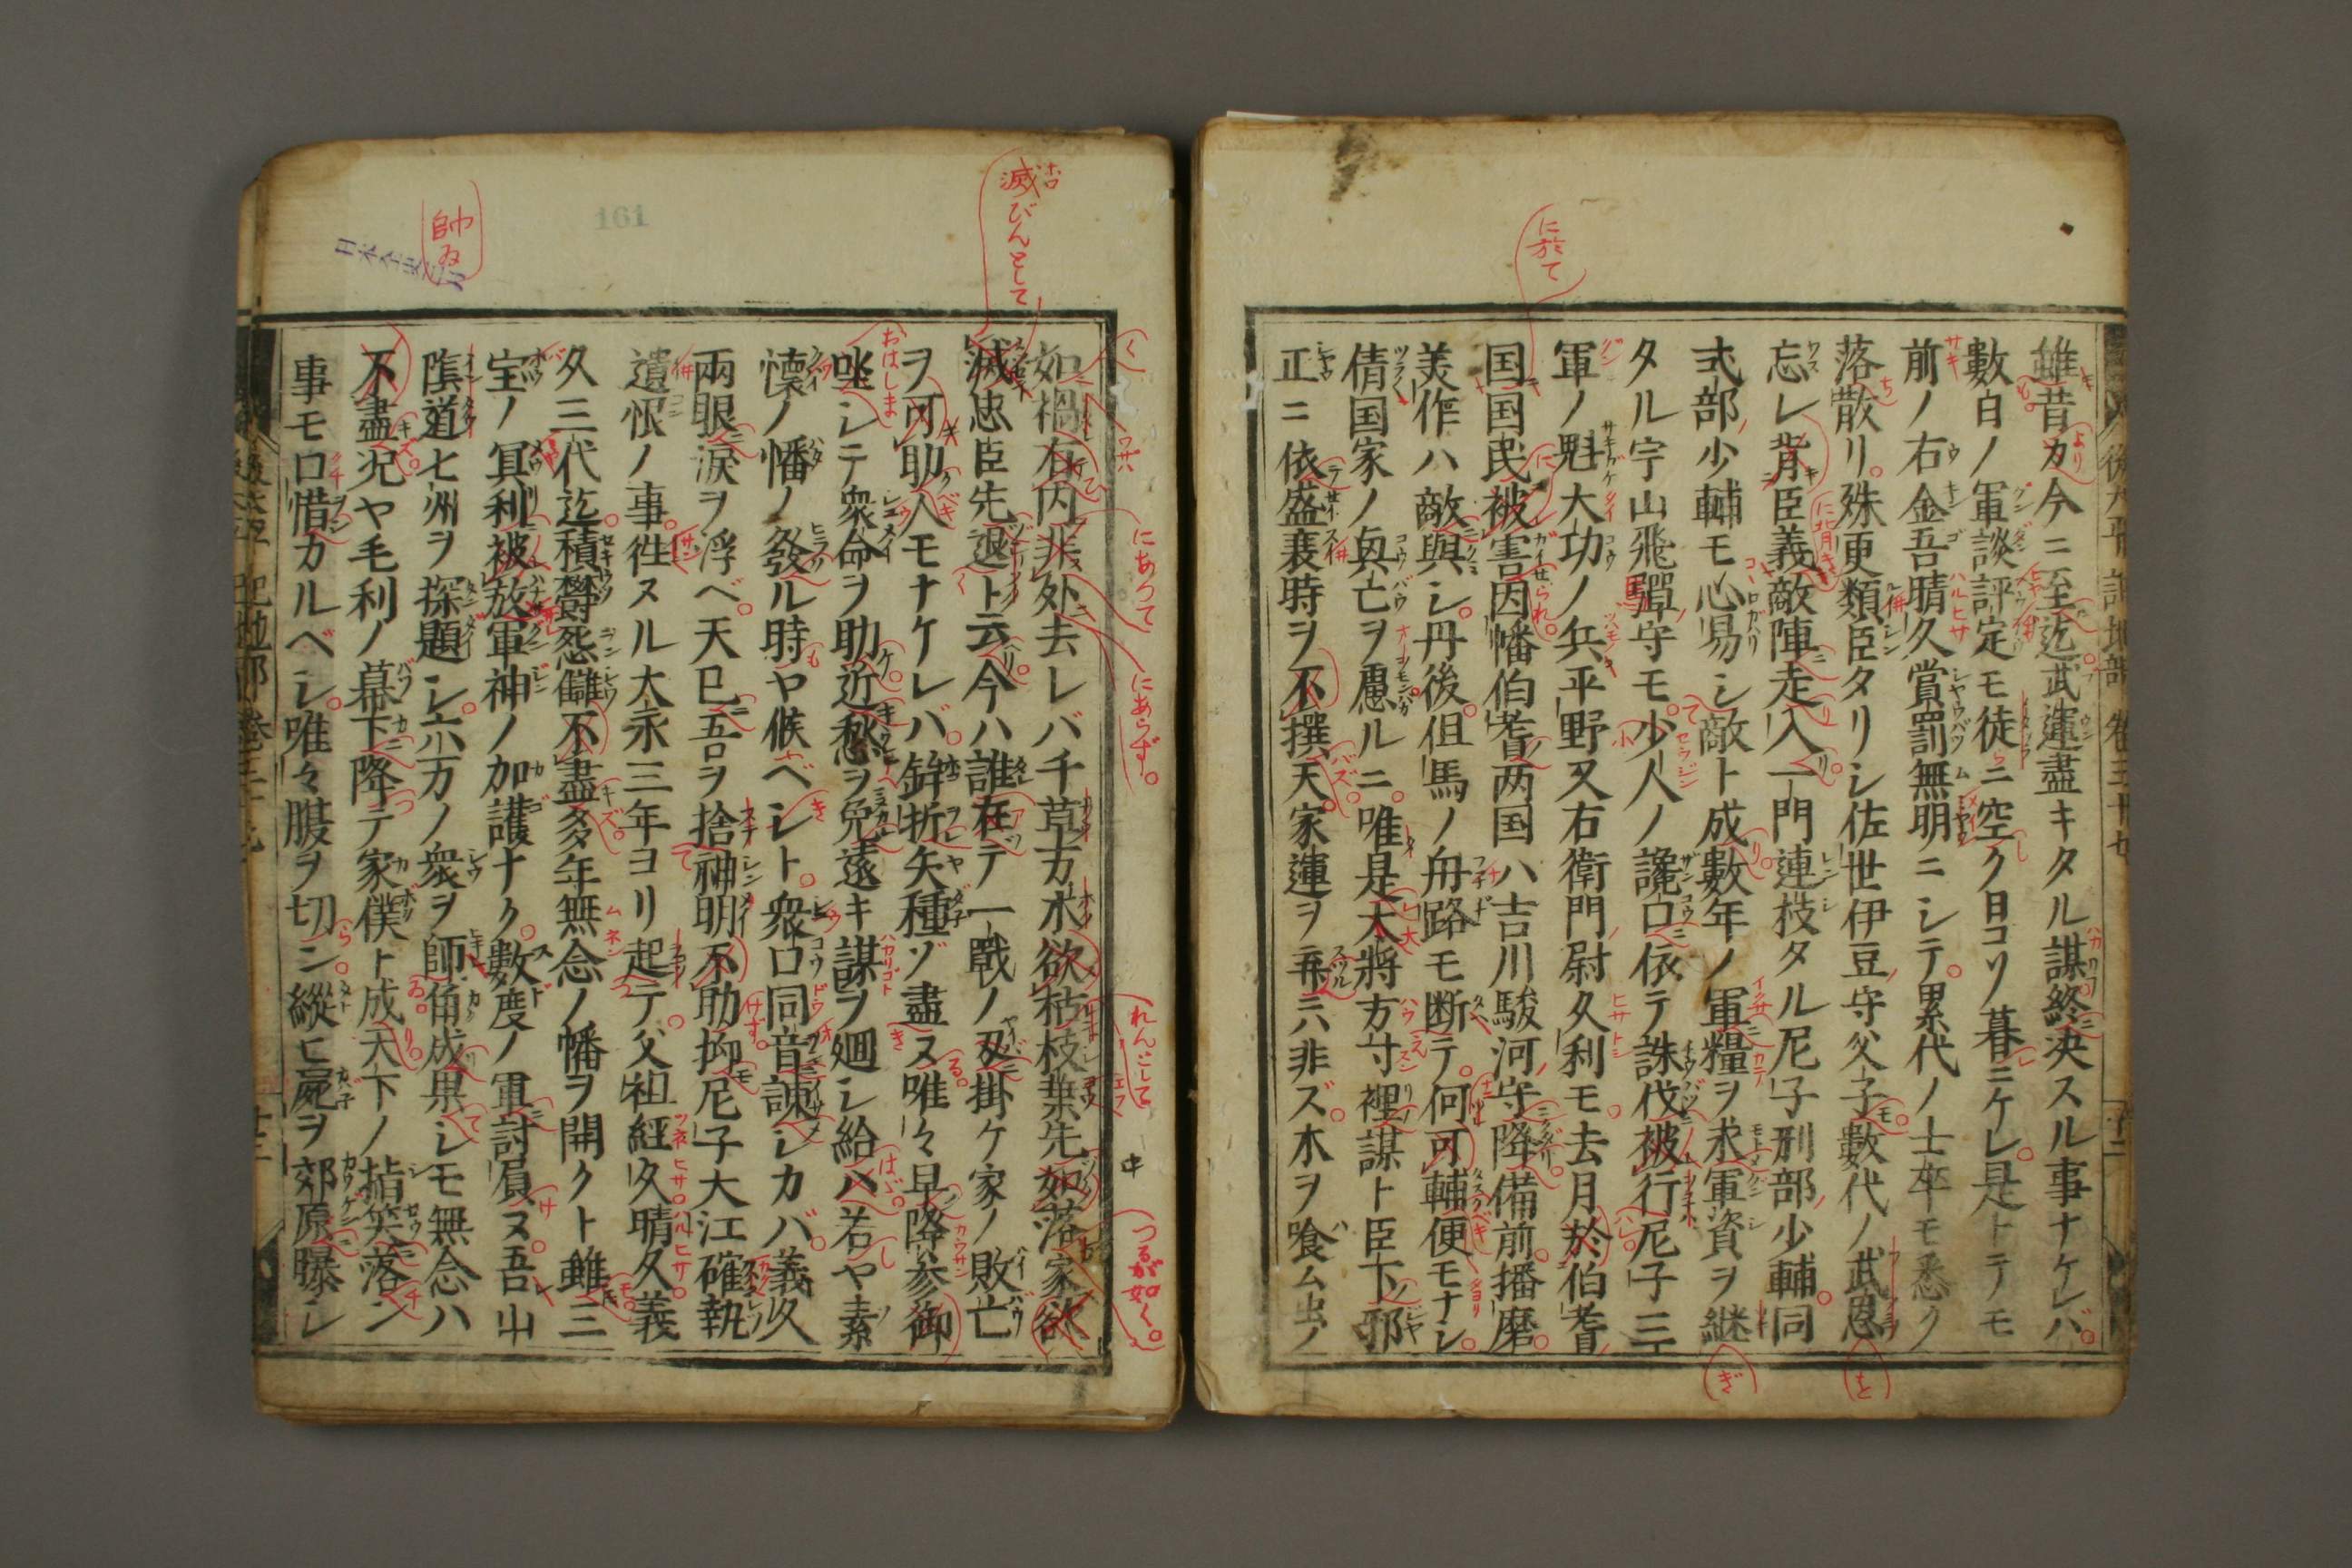 雖昔カ今ニ至迄武運盡キタル謀終決スル事ナケレバ
數白ノ軍談評定モ徒ニ空ク日コリ暮ニケレ是トテモ
前ノ右金吾晴久賞罰無明ニシテ累代ノ士卒モ悉ク
落散リ殊更類臣タリシ佐世伊豆守父子數代ノ武恩
忘レ背臣義敵陣走入一門連枝タル尼子刑部少輔同
式部少輔モ心易シ敵ト成數年ノ軍糧ヲ求軍資ヲ継
タル宇山飛彈守モ少人ノ讒口依テ誅伐被行尼子三
軍ノ魁大功ノ兵平野又右衛門尉久利モ去月於伯耆
国国民被害因幡伯耆两国ハ吉川駿河守降備前播磨
美作ハ敵與シ丹後但馬ノ舟路モ断テ何可輔便モナシ
倩国家ノ興亡ヲ慮ルニ唯是大將方寸裡謀ト臣下邪
正ニ依盛衰時ヲ不撰天家運ヲ棄ニハ非ズ木ヲ喰ム虫ノ
に於て
に背き
後太平記地部 巻三十七
如禍在内非処去レバ千草万木欲枯枝葉先如落家欲
滅忠臣先退ト云今ハ誰在テ一戰ノ刄掛ケ家ノ敗亡
ヲ可助人モナケレバ鉾折矢種ゾ盡ヌ唯々早降参御
坐シテ衆命ヲ助近愁ヲ免遠キ謀ヲ廻シ給ハ若ヤ素
懐ノ幡ノ發ル時ヤ候ベシト衆口同音諫シカバ義久
兩眼涙ヲ浮ベ天已吾ヲ捨神明不助抑尼子大江確執
遺恨ノ事徃スル大永三年ヨリ起テ父祖経久晴久義
久三代迄積欝怨讎不盡多年無念ノ幡ヲ開クト雖三
宝ノ冥利被放軍神ノ加護ナク數度ノ軍討負ヌ吾山
隂道七州ヲ探題シ六万ノ衆ヲ師角成果シモ無念ハ
不盡况ヤ毛利ノ幕下降テ家僕ト成天下ノ指笑落ン
事モ口惜カルベシ唯々腹ヲ切ン縱ヒ屍ヲ郊原曝シ
滅びんとして
にあつて
にあらず。
れんとして
中
つるが如く。
帥ゐ
161